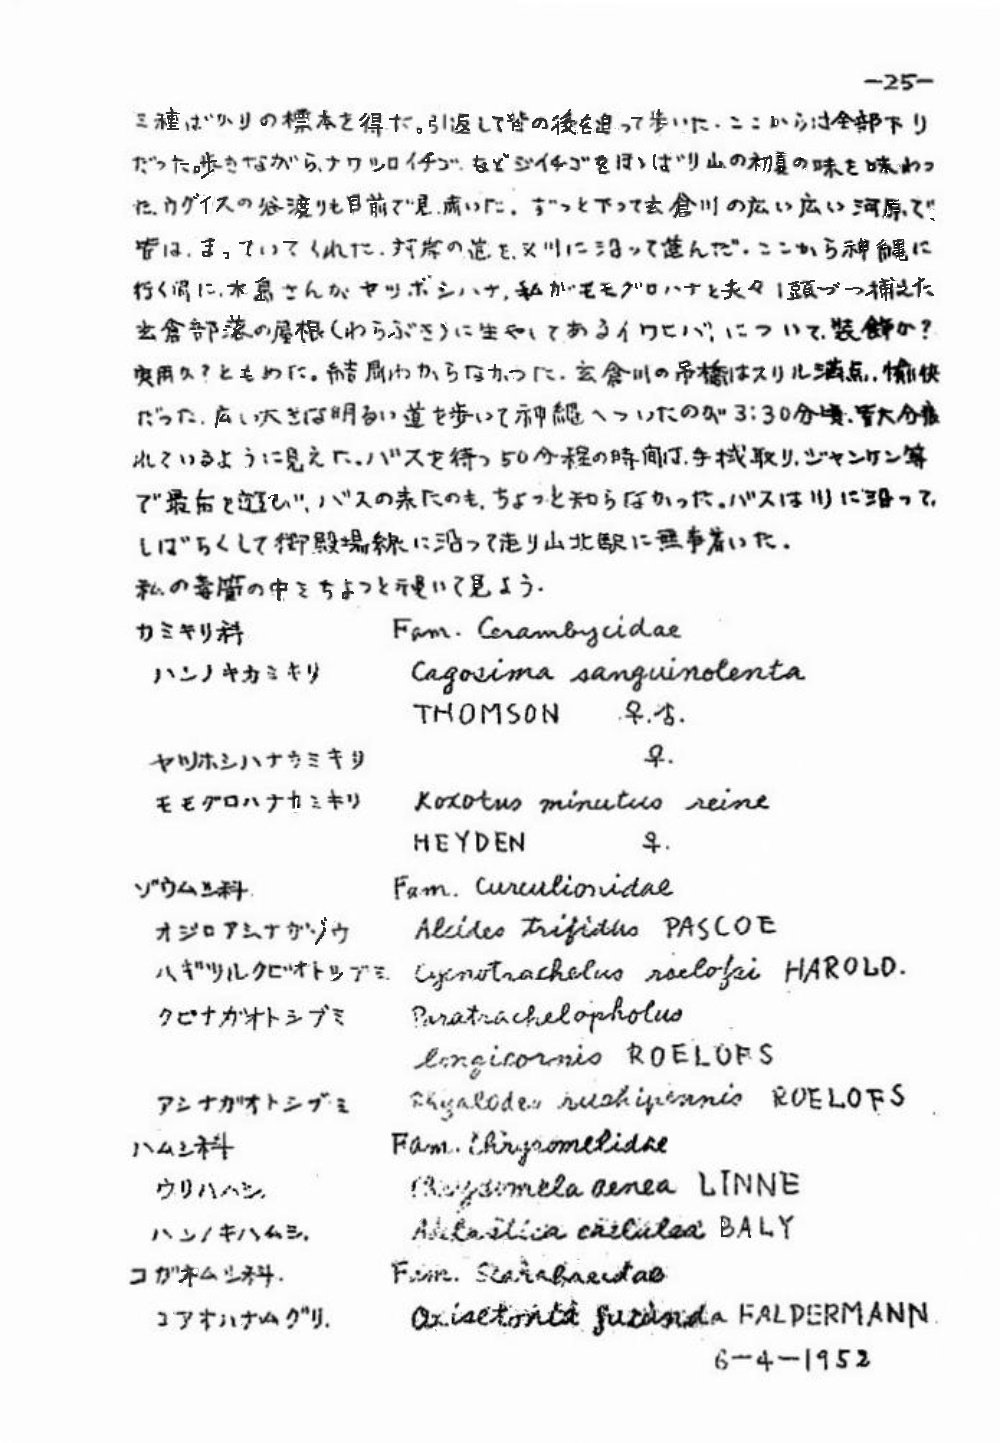 -25-
三種ばかりの標本を得た。引返して皆の後を追って歩いた.ここからは全部下り
だった。歩きながら、ナワシロイチゴ、などジイチゴをほゝばり山の初夏の味を味わっ
た.ウグイスの谷渡りも目前で見.聞いた。ずっと下って玄倉川の広い広い河原で、
皆は.まっていてくれた.対岸の道を又川に沿って進んだ.ここから神縄に
行く间に.水島さんがヤツボシハナ,私がモモグロハナと夫々1頭づつ捕えた
玄倉部落の屋根(わらぶき)に生やしてあるイワヒバ,について,装飾か?
実用か?ともめた。結局わからなかった.玄倉川の吊橋はスリル満点,愉快
だった.広い大きな明るい道を歩いて神縄へついたのが3:30分頃.皆大分疲
れているように見えた.バスを待つ50分程の時間は.手拭取り.ジャンケン等
で最后と遊び,バスの来たのも,ちょっと知らなかった.バスは川に沿って,
しばらくして御殿場線に沿って走り山北駅に無事着いた.
私の毒管の中をちょっと覗いて見よう.
カミキリ科 Fam. Cerambycidae
ハンノキカミキリ Cagosima sanguinolenta
THOMSON ♀.♂.
ヤツホシハナカミキリ ♀.
モモグロハナカミキリ Koxotus minutus reine
HEYDEN ♀.
ゾウムシ科 Fam. Curculionidae
オジロアシナガゾウ Alcides trifidus PASCOE
ハギツルクビオトシブミ. Cycnotrachelus roelofsi HAROLD.
クビナガオトシブミ Paratrachelopholus
longicornis ROELOFS
アシナガオトシブミ ROELOFS
ハムシ科 Fam. Chrysomelidae
ウリハハシ. Chrysomela aenea LINNE
ハンノキハムシ. Agelastica caelulea BALY
コガネムシ科. Fam. Scarabaeidae
コアオハナムグリ. Oxisetonia jucunda FALDERMANN
6-4-1952